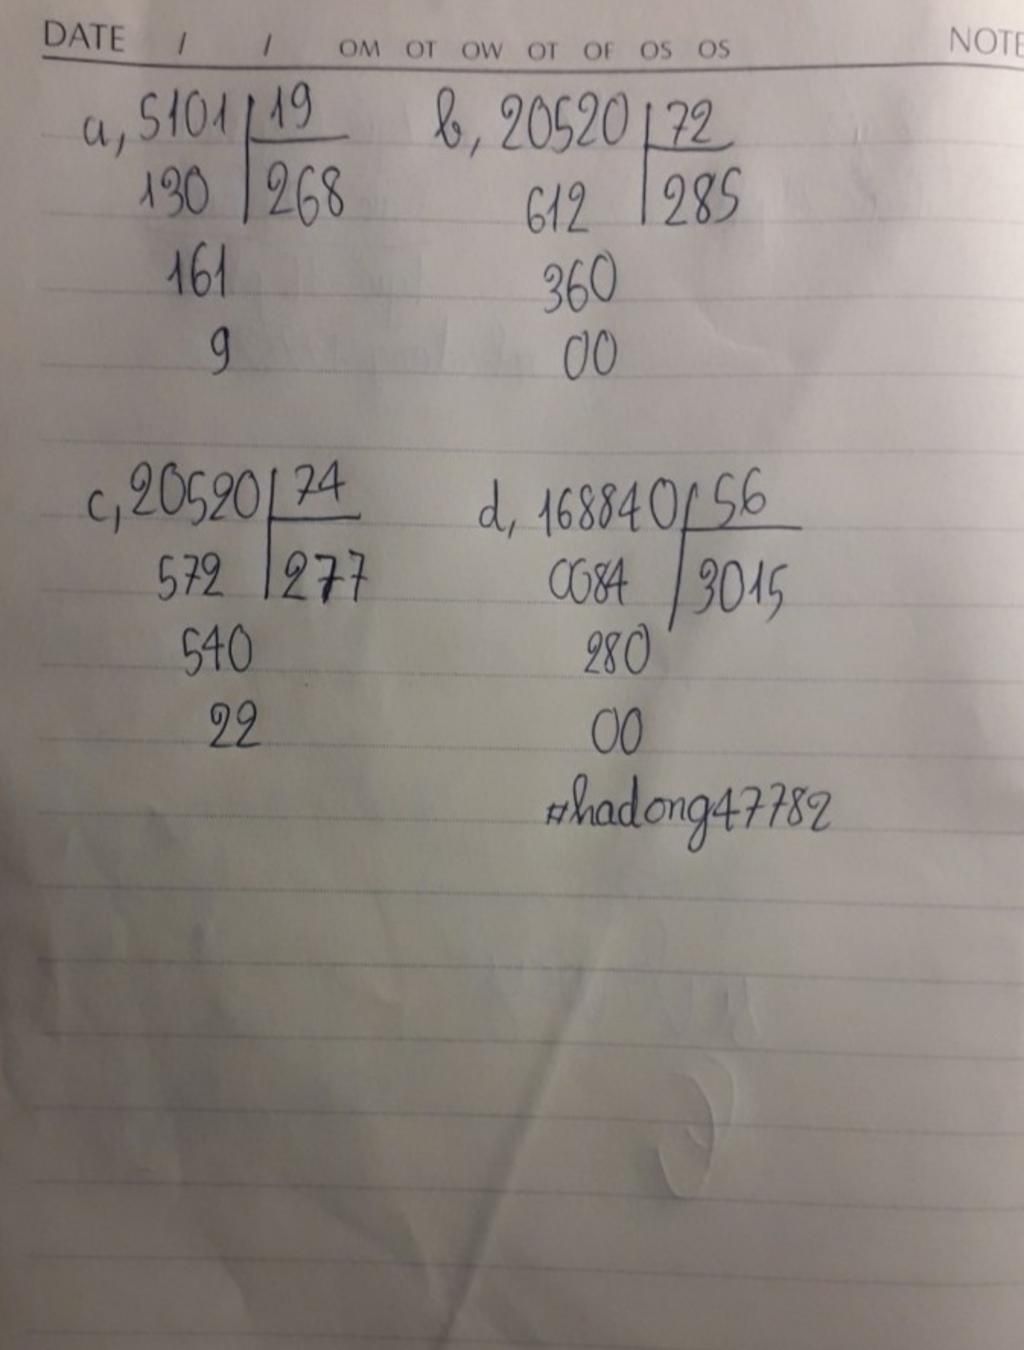 DATE / / OM OT OW OT OF OS OS NOTE
a, 5101 19 b, 20520 72
130 268 612 285
161 360
9 00
c, 20520 74 d, 168840 56
572 277 0084 3015
540 280
22 00
#hadong47782